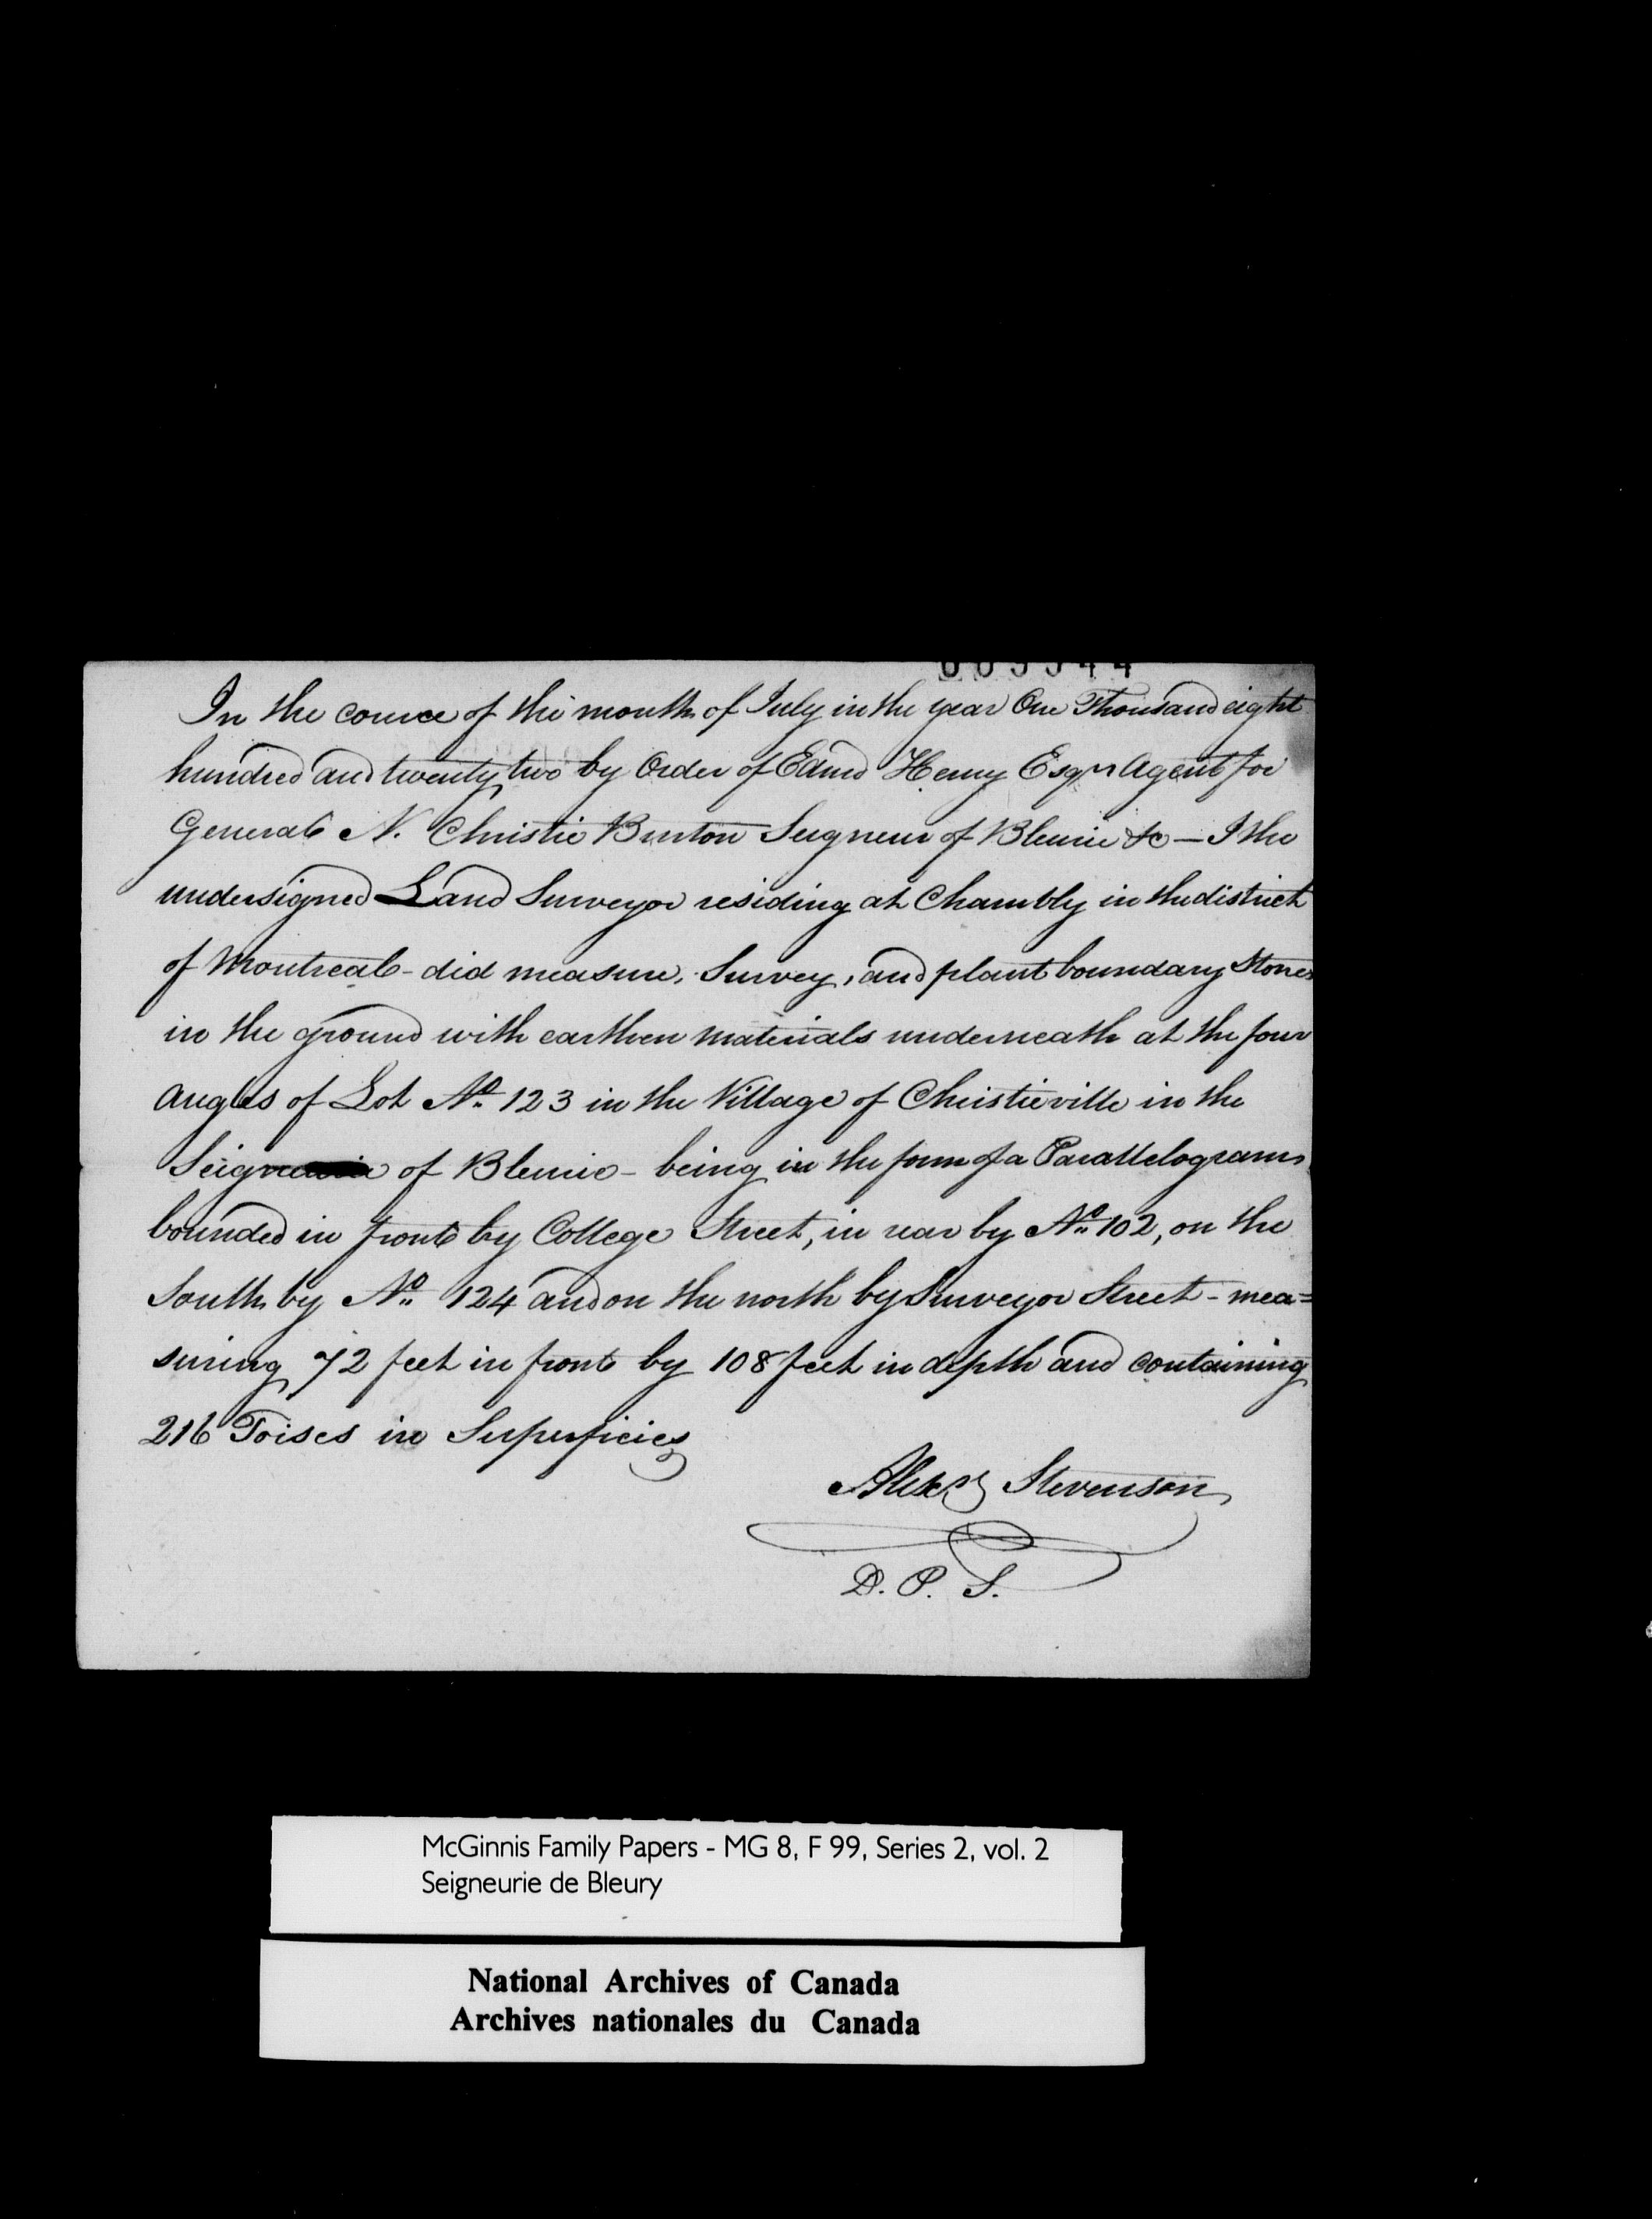 In the course of the month of July in the year One Thousand eight
hundred and twenty two by Order of Edmd Henry Esqr Agent for
General N. Christie Burton Seigneur of Bleurie &c — I the
undersigned Land Surveyor residing at Chambly in the district
of Montreal - did measure, Survey, and plant boundary Stones
in the ground with earthen materials underneath at the four
angles of Lot No. 123 in the Village of Christieville in the
of Bleurie - being in the form of a Parallelogram
bounded in front by College Street, in rear by No. 102, on the
South by No. 124 and on the north by Surveyor Street - mea=
suring 72 feet in front by 108 feet in depth and containing
216 Toises in Superficies
Alexr Stevenson
D. P. S.
McGinnis Family Papers - MG 8, F 99, Series 2, vol. 2
Seigneurie de Bleury
National Archives of Canada
Archives nationales du Canada